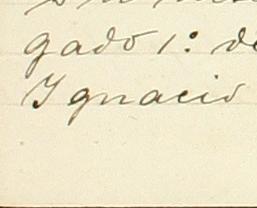 gado 1º de
Ignacio